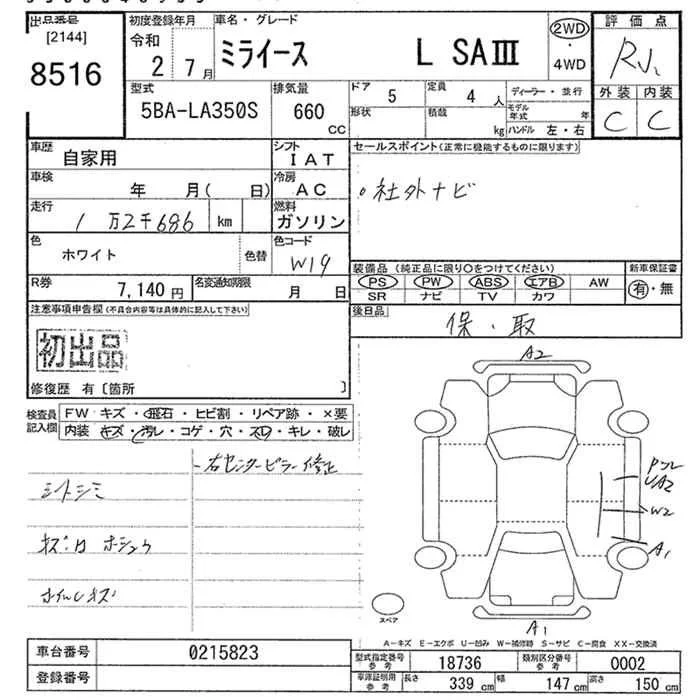 出品番号
[2144]
8516
初度登録年月
令和
2 7月
車名・グレード
ミライース L SAⅢ
2WD
・
4WD
評価点
R
外装 内装
C C
型式
5BA-LA350S
排気量
660
CC
ドア
5
定員
4 人
ディーラー・並行
形状
積載
kg
モデル年式 年
ハンドル 左・右
車歴
自家用
シフト
IAT
車検
年 月( 日)
冷房
AC
走行
1万2千686 km
燃料
ガソリン
色
ホワイト
色替
色コード
W19
R券
7,140円
名変通知期限
月 日
セールスポイント(正常に機能するものに限ります)
社外ナビ
装備品(純正品に限り○をつけてください)
新車保証書
PS PW ABS エアB AW
SR ナビ TV カワ
有・無
後日品
保・取
注意事項申告欄(不具合内容等は具体的に記入して下さい)
初出品
修復歴 有〔箇所 〕
検査員記入欄
FW キズ・飛石・ヒビ割・リペア跡・×要
内装 キズ・汚レ・コゲ・穴・スレ・キレ・破レ
右センターピラー修正
シートシミ
ホイルキズ
A2
W2
A1
A1
スペア
A-キズ E-エクボ U-凹み W-補修跡 S-サビ C-腐食 XX-交換済
車台番号
0215823
登録番号
型式指定番号
参考
18736
類別区分番号
参考
0002
車庫証明用
参考
長さ 339 cm
幅 147 cm
高さ 150 cm